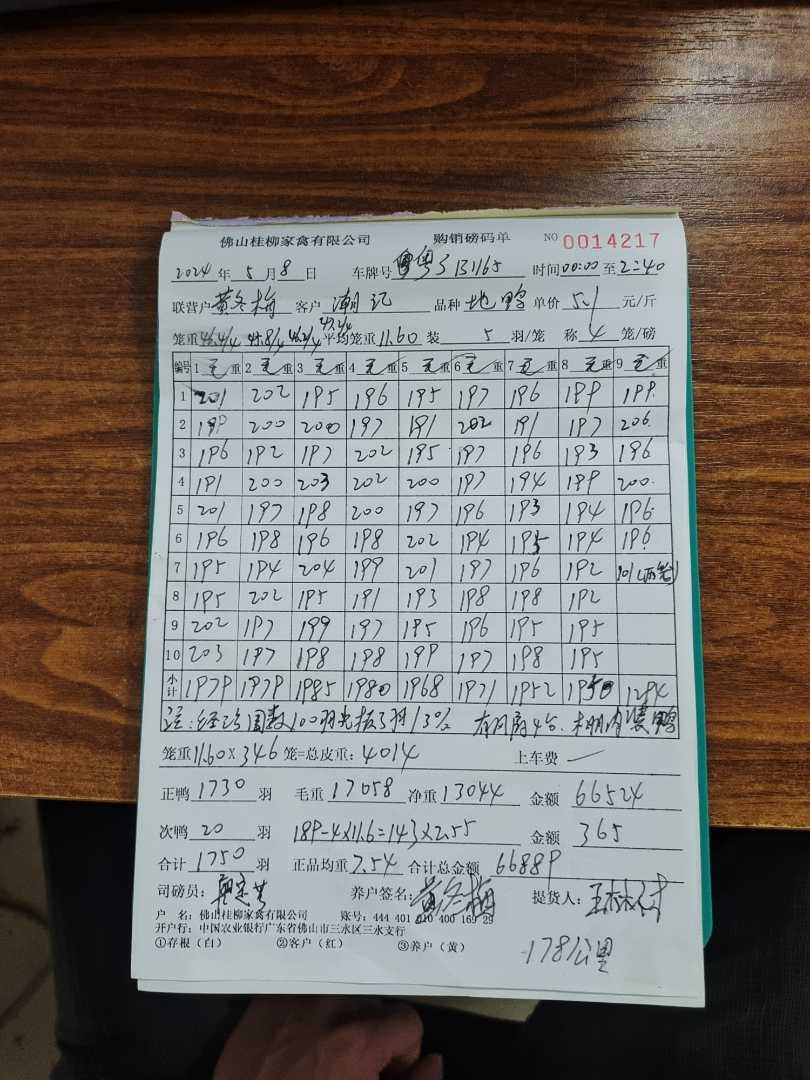 佛山桂柳家禽有限公司 购销磅码单 NO 0014217
2024 年 5 月 8 日 车牌号 粤S B1165 时间 00:00 至 2:40
联营户 黄冬梅 客户 潮记 品种 地鸭 单价 5.1 元/斤
47.2/4
笼重 46.4/4 45.8/4 46.2/4 平均笼重 11.60 装 5 羽/笼 称 4 笼/磅
编号 1 毛重 2 毛重 3 毛重 4 毛重 5 毛重 6 毛重 7 毛重 8 毛重 9 毛重
1 201 202 195 196 195 197 196 199 199
2 199 200 200 197 191 202 191 197 206
3 196 192 197 202 195 197 196 193 196
4 191 200 203 202 200 197 194 199 200
5 201 197 198 200 197 196 193 194 196
6 196 198 196 198 202 194 195 194 196
7 195 194 204 199 201 197 196 192 101(两笼)
8 195 202 195 191 193 198 198 192
9 202 197 199 197 195 196 195 195
10 203 197 198 198 199 197 198 195
小计 1979 1979 1985 1980 1968 1971 1952 1950 1294
注: 100羽 13%
笼重 11.60 X 346 笼=总皮重: 4014 上车费 —
正鸭 1730 羽 毛重 17058 净重 13044 金额 66524
次鸭 20 羽 189-4×11.6=143×2.55 金额 365
合计 1750 羽 正品均重 7.54 合计总金额 66889
司磅员: 养户签名: 黄冬梅 提货人:
户 名: 佛山桂柳家禽有限公司 账号: 444 401 010 400 169 29
开户行: 中国农业银行广东省佛山市三水区三水支行
①存根(白) ②客户(红) ③养户(黄)
178公里